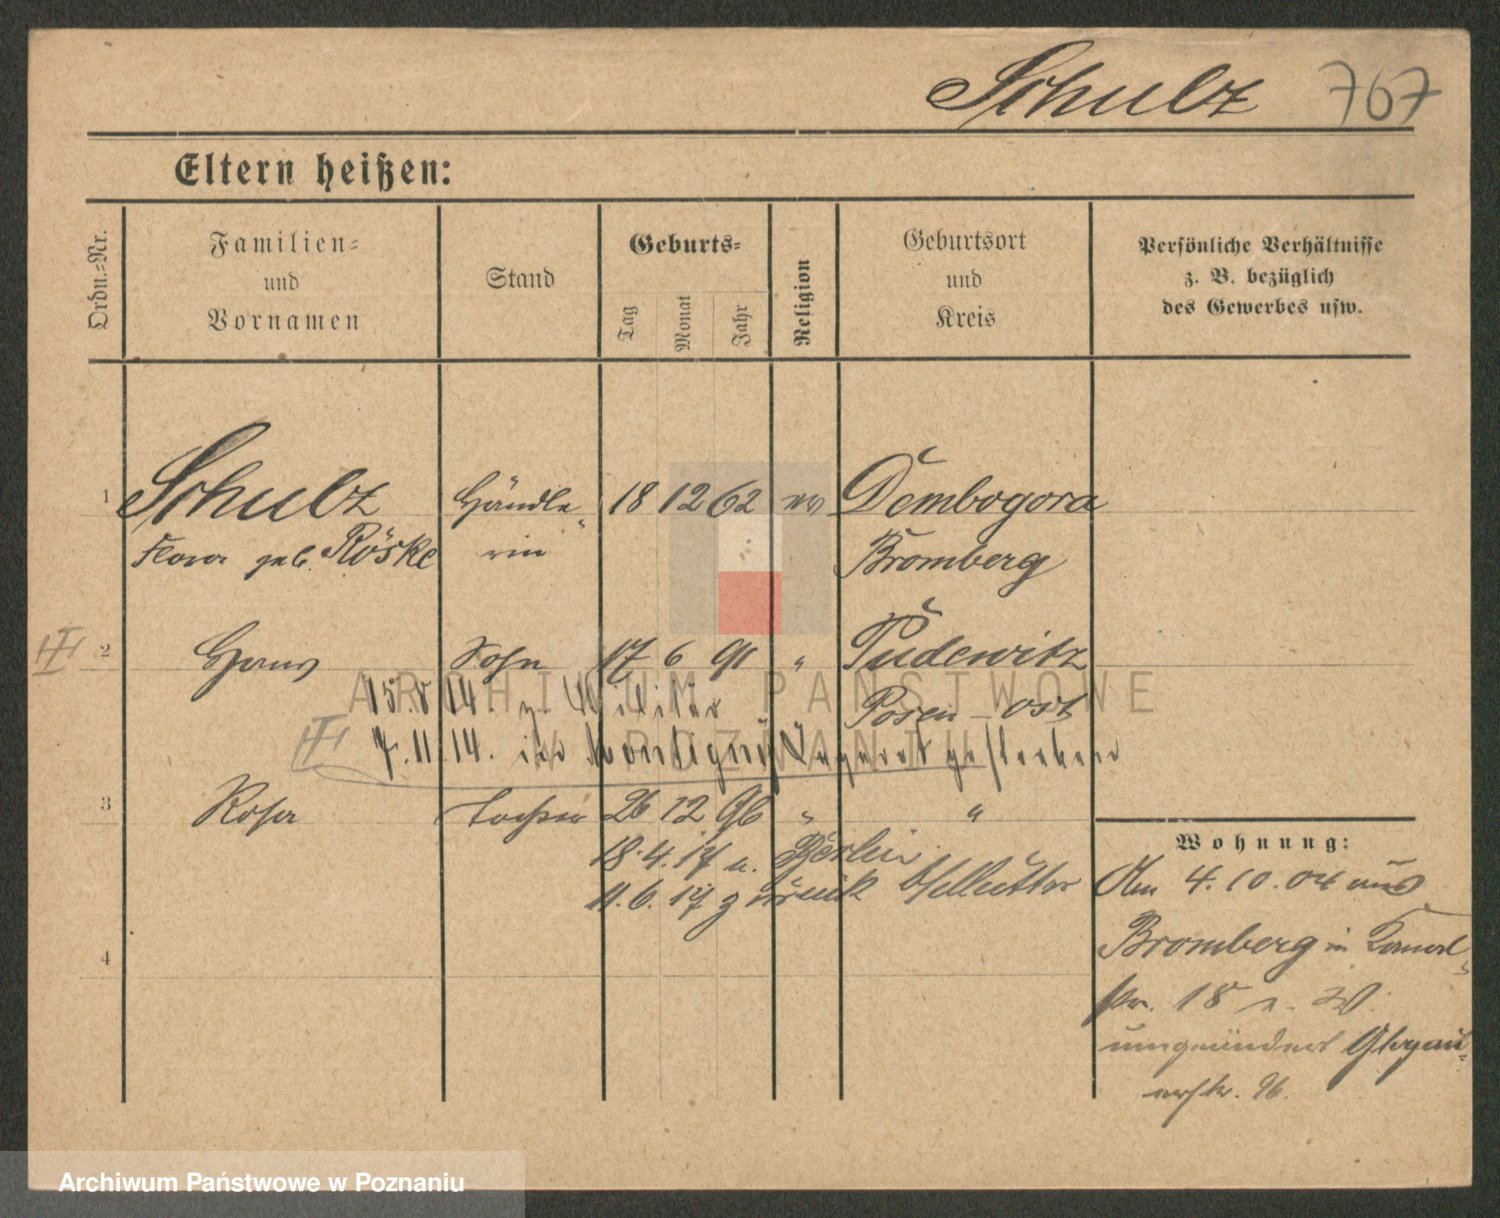 Schulz 767
Eltern heißen:
Ordn.=Nr.
Familien=
und
Vornamen
Stand
Geburts=
Tag
Monat
Jahr
Religion
Geburtsort
und
Kreis
Persönliche Verhältnisse
z. B. bezüglich
des Gewerbes usw.
1 Schulz Händle= 18 12 62 ev Dembogora
Flora geb. Röske rin Bromberg
2 Hans Sohn 17 6 91 " Pudewitz
15.8 14. z. Militär Posen-ost
7.11.14. im Lazarett gestorben
3 Rosa Tochter 26 12 96 " "
18.4.17 n. Berlin
11.6.17 zurück b/Mutter
4
Wohnung:
Am 4.10.04 aus
Bromberg in
str. 18
Glogau=
erstr. 96.
ARCHIWUM PAŃSTWOWE
W POZNANIU
Archiwum Państwowe w Poznaniu